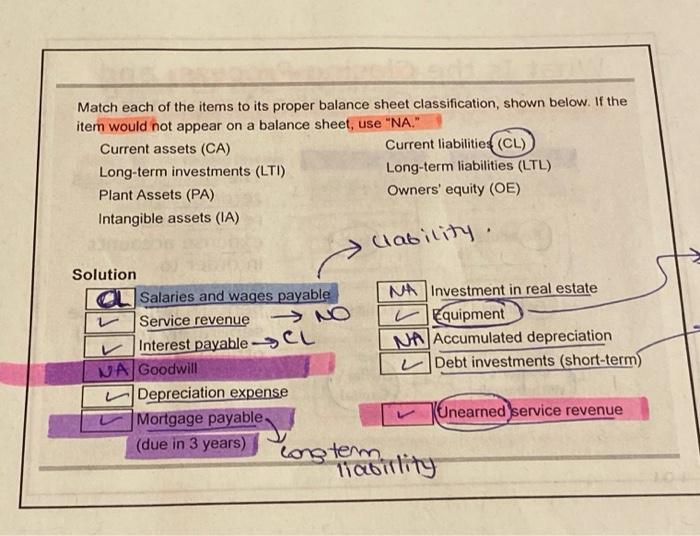 Match each of the items to its proper balance sheet classification, shown below. If the
item would not appear on a balance sheet, use "NA."
Current assets (CA)
Current liabilities (CL)
Long-term investments (LTI)
Long-term liabilities (LTL)
Plant Assets (PA)
Owners' equity (OE)
Intangible assets (IA)
→ liability.
Solution
CL Salaries and wages payable
✓ Service revenue → NO
✓ Interest payable → CL
NA Goodwill
✓ Depreciation expense
✓ Mortgage payable
(due in 3 years)
long term
liability
NA Investment in real estate
✓ Equipment
NA Accumulated depreciation
✓ Debt investments (short-term)
✓ Unearned service revenue